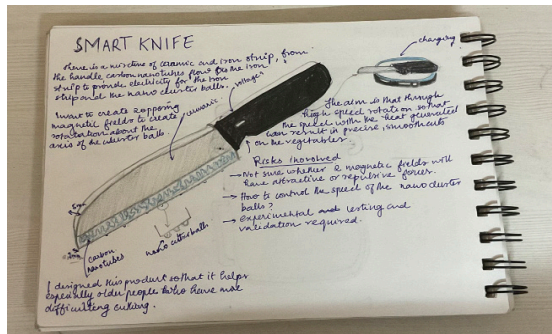 SMART KNIFE
There is a mixture of ceramic and iron strip, from
the handle carbon nanotubes flow to the iron
strip to provide electricity for the iron
strip and the nano cluster balls.
I want to create 2 opposing
magnetic fields to create
rotation about the
axis of the cluster balls.
ceramic
voltages
charging
The aim is that through
high speed rotation so that
the speed with the heat generated
can result in precise, smooth cuts
on the vegetables.
Risks involved
→ Not sure whether 2 magnetic fields will
have attractive or repulsive forces.
→ How to control the speed of the nano cluster
balls?
→ Experimental and testing and
validation required.
carbon
nanotubes
nano balls
I designed this product so that it helps
especially older people who have
difficulty in cutting.